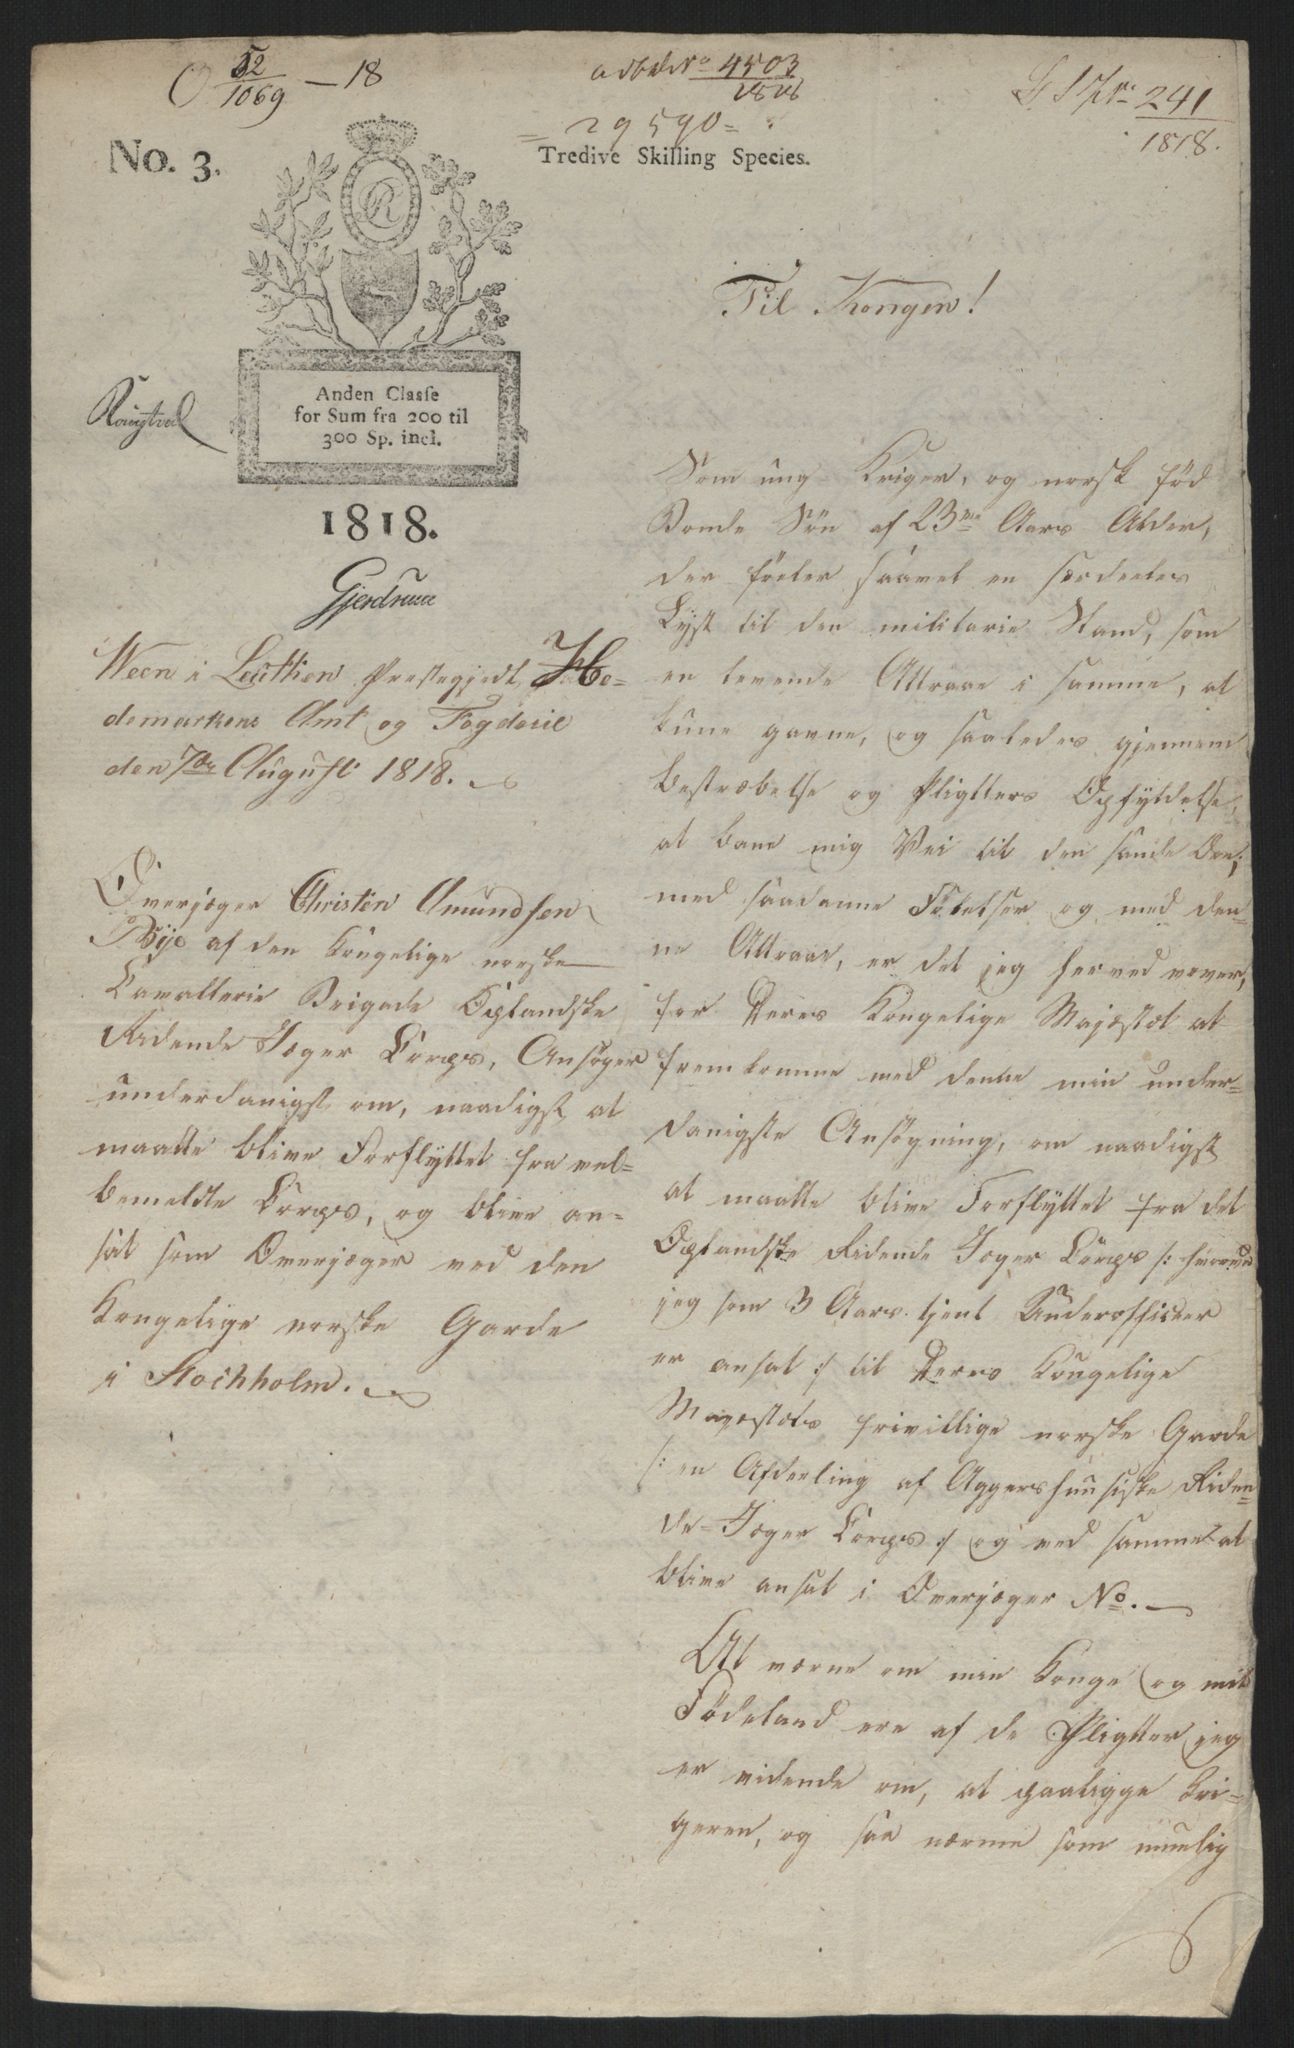 52
1069 — 18
4503
1818
= 29590 =
241
1818.
No. 3.
Tredive Skilling Species.
R
Anden Classe
for Sum fra 200 til
300 Sp. incl.
1818.
Gjerdrum
Til Kongen!
Ween i Leuthen Prestegjeld, He-
demarkens Amt og Fogderie
den 7de August 1818.
Overjæger Christen Amundsen
Bye af den Kongelige norske
Cavallerie Brigade Oplandske
Ridende Jæger Corps, Ansøger
underdanigst om, naadigst at
maatte blive Forflyttet fra vel-
bemeldte Corps, og blive an-
sat som Overjæger ved den
Kongelige norske Garde
i Stockholm.
Som ung Kriger, og norsk fød
Bonde Søn af 23de Aars Alder,
der føeler saavel en særdeeles
Lyst til den militarie Stand, som
en levende Attraae i samme, at
kune gavne, og saaledes gjennem
Bestræbelse og Pligtters Opfyldelse,
at bane mig Vei til den sande Ære;
med saadanne Følelser og med den-
ne Attraae, er det jeg herved vover,
for Deres Kongelige Majestæt at
fremkomme med denne min under-
danigste Ansøgning, om naadigst
at maatte blive Forflyttet fra det
Oplandske Ridende Jæger Corps /: hvorved
jeg som 3 Aars tjent Underofficeer
er ansat :/ til Deres Kongelige
Majestæts frivillige norske Garde
/: en Afdeeling af Aggershuusiske Riden-
de-Jæger Corps :/ og ved samme at
blive ansat i Overjæger No. —
At værne om min Konge og mit
Fødeland ere af de Pligtter jeg
er vidende om, at paaligge Kri-
geren, og saa nærme som muelig